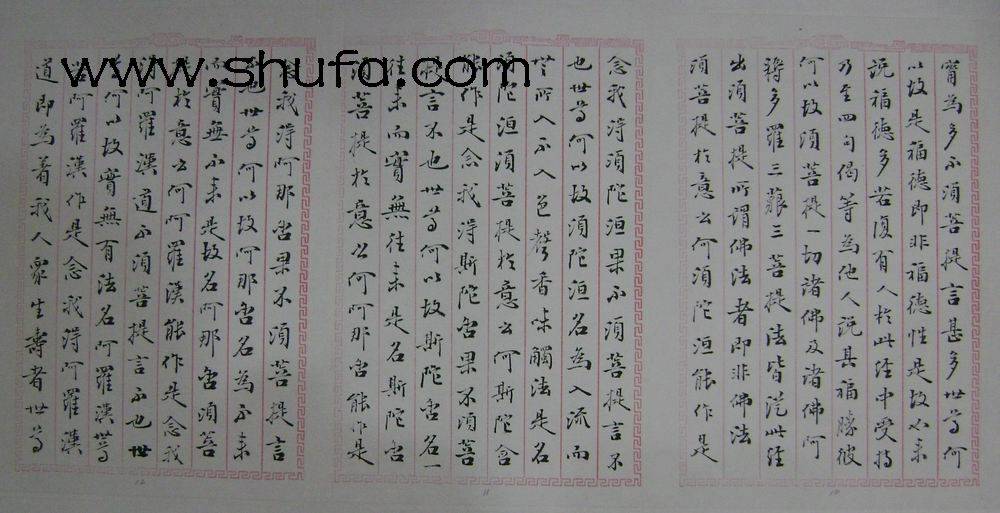 www.shufa.com
寧為多不須菩提言甚多世尊何
以故是福德即非福德性是故如来
說福德多若復有人於此經中受持
乃至四句偈等為他人說其福勝彼
何以故須菩提一切諸佛及諸佛阿
耨多羅三藐三菩提法皆從此經
出須菩提所謂佛法者即非佛法
須菩提於意云何須陀洹能作是
念我得須陀洹果不須菩提言不
也世尊何以故須陀洹名為入流而
無所入不入色聲香味觸法是名
須陀洹須菩提於意云何斯陀含
能作是念我得斯陀含果不須菩
提言不也世尊何以故斯陀含名一
往来而實無往来是名斯陀含
須菩提於意云何阿那含能作是
念我得阿那含果不須菩提言
不也世尊何以故阿那含名為不来
而實無不来是故名阿那含須菩
提於意云何阿羅漢能作是念我
得阿羅漢道不須菩提言不也世
尊何以故實無有法名阿羅漢世尊
若阿羅漢作是念我得阿羅漢
道即為着我人衆生壽者世尊
10
11
12